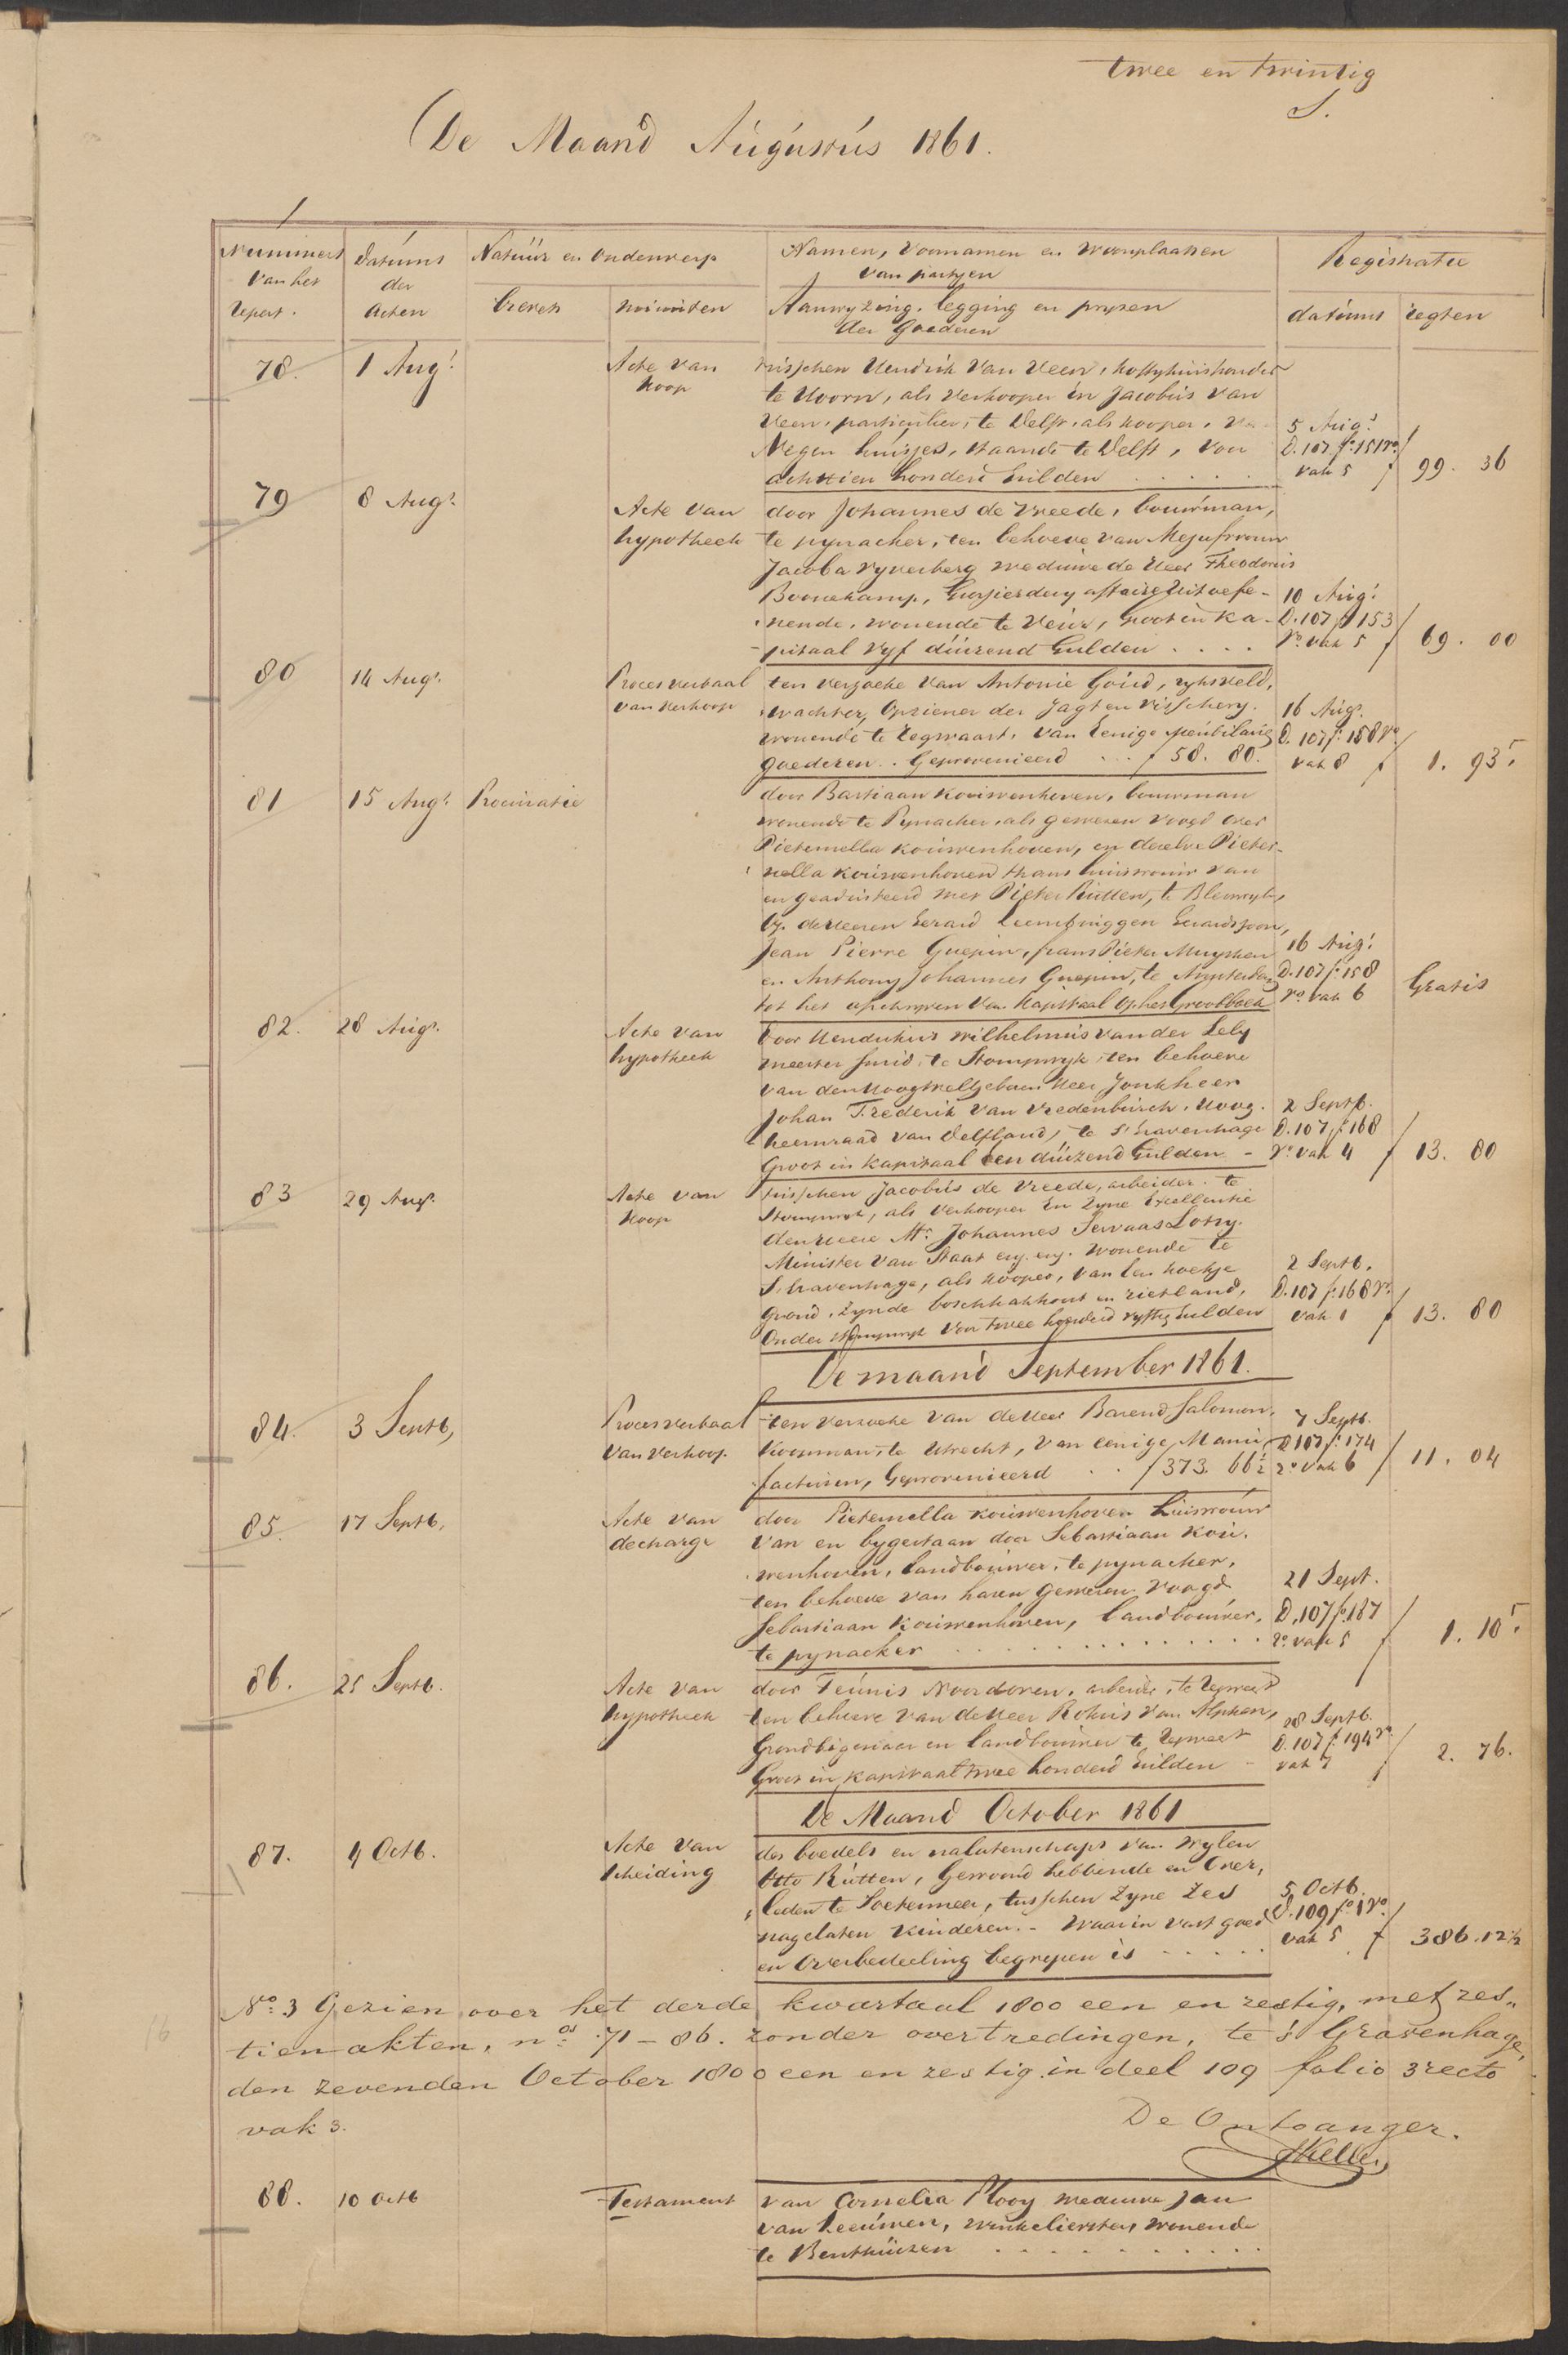 twee en twintig
S.
De Maand Augustus 1861.
Nummers van het Repert.
datums der Acten
Natuur en Onderwerp
brevets
minuiten
Namen, Voornamen en Woonplaatsen
van partyen
Aanwyzing, legging en pryzen
der Goederen
Registratie
datums
regten
78. 1 Augt. Acte van
koop
tusschen Hendrik van Veen, koffyhuishouder
te Hoorn, als verkooper en Jacobus van
Veen, particulier, te Delft, als kooper, van
Negen huisjes, staande te Delft, voor
achttien honderd Gulden . . . . .
5 Augt.
D. 107 fo. 151 vo.
vak 5 f 99. 36
79 8 Augt. Acte van
hypotheek
door Johannes de Vreede, bouwman,
te pynacker, ten behoeve van Mejufvrouw
Jacoba Vyverberg weduwe de Heer Theodorus
Boonekamp, Grossierdery affaire uitoefe-
nende, wonende te Veur, groot in Ka-
pitaal vyf duizend Gulden . . . .
10 Augt.
D. 107 fo 153
ro. vak 5 f 69. 00
80 14 Augt. Proces verbaal
van verkoop
ten verzoeke van Antonie Goud, ryksveld,
wachter, Opziener der Jagt en Visschery.
wonende te Zegwaart, van Eenige meubilaire
goederen. Geprovenieerd . . . f 58. 80.
16 Augt.
D. 107 fo. 158 vo
vak 8 f 1. 93 5
81 15 Augt. Procuratie
door Bastiaan Kouwenhoven, bouwman
wonende te Pynacker, als gewezen voogd over
Pieternella Kouwenhoven, en dezelve Pieter-
nella Kouwenhoven thans huisvrouw van
en geadsisteerd met Pieter Rutten, te Bleiswyk,
op de Heeren Gerard Leembruggen Gerardszoon,
Jean Pierre Guepin, frans Pieter Muysken
en Anthony Johannes Guepin, te Amsterdam
tot het afschryven van Kapitaal op het Grootboek
16 Augt.
D. 107 fo. 158
ro. vak 6 Gratis
82. 28 Augt. Acte van
hypotheek
door Hendrikus Wilhelmus van der Lely
meester smid, te Stompwyk, ten behoeve
van den Hoogwelgeboren Heer Jonkheer
Johan Frederik van Vredenburch, Hoog.
heemraad van Delfland, te s'Gravenhage
Groot in kapitaal een duizend Gulden -
2 Septb.
D. 107 fo 168
ro. vak 4 f 13. 80
83 29 Augt. Acte van
koop
tusschen Jacobus de Vreede, arbeider, te
Stompwyk, als verkooper en Zyne Excellentie
den Heere Mr. Johannes Servaas Lotsy.
Minister van Staat enz. enz. wonende te
S'Gravenhage, als kooper, van een hoekje
Grond, zynde boschhakhout en rietland,
Onder Stompwyk voor twee honderd vyftig Gulden
2 Septb.
D. 107 fo. 168 vo.
vak 1 f 13. 80
De maand September 1861.
84. 3 Septb, Proces verbaal
van verkoop.
ten verzoeke van de Heer Barend Salomon,
Koopman, te Utrecht, van eenige Manu-
facturen, Geprovenieerd . . f 373. 66½
7 Septb.
D 107 fo. 174
ro vak 6 f 11. 04
85. 17 Septb. Acte van
decharge
door Pieternella Kouwenhoven huisvrouw
van en bygestaan door Sebastiaan Kou.
wenhoven, landbouwer, te pynacker,
ten behoeve van haren gewezen voogd
Sebastiaan Kouwenhoven, landbouwer,
te pynacker . . . . . . . . . . . . .
21 Sept.
D. 107 fo. 187
ro. vak 5 f 1. 10 5
86. 25 Septb. Acte van
hypotheek
door Teunis Noordoven, arbeider, te Zegwaart
ten behoeve van de Heer Rokus van Alphen,
Grondeigenaar en landbouwer te Zegwaart
Groot in kapitaal twee honderd Gulden -
28 Septb.
D. 107 fo 194 vo.
vak 7 f 2. 76.
De Maand October 1861
87. 4 Octb. Acte van
Scheiding
des boedels en nalatenschaps van wylen
Otto Rutten, Gewoond hebbende en Over,
leden te Soetermeer, tusschen Zyne Zes
nagelaten kinderen. - Waarin vast goed
en Overbedeeling begrepen is . . . . .
5 Octb.
D. 109 fo 1 vo.
vak 5 f 386. 12½
No. 3 Gezien over het derde kwartaal 1800 een en zestig, met zes„
tien akten, nos. 71 - 86. zonder overtredingen, te 's Gravenhage,
den zevenden October 1800 een en zestig. in deel 109 folio 3 recto
vak 3.
De Ontvanger.
16
88. 10 Octb Testament
van Cornelia Plooy weduwe Jan
van Leeuwen, winkelierster, wonende
te Benthuizen . . . . . . . . . .